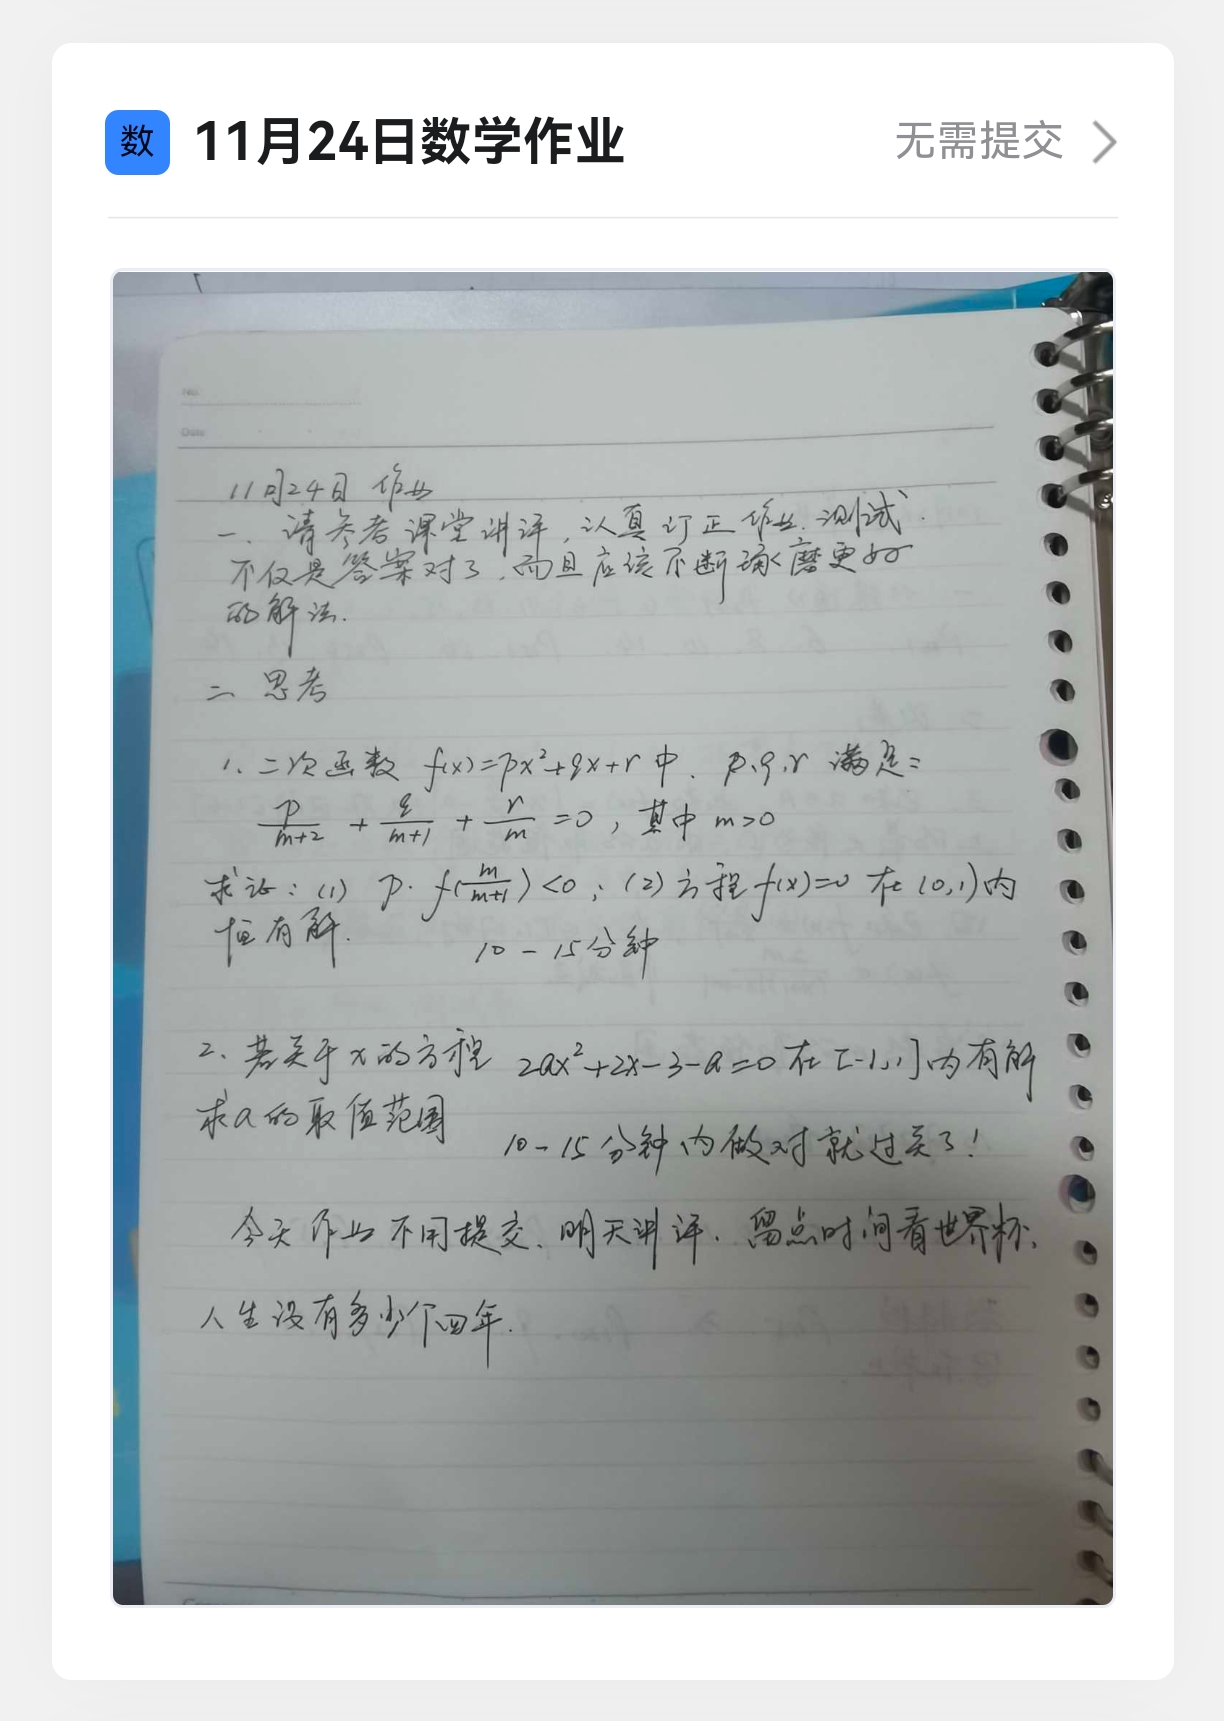 数 11月24日数学作业 无需提交
No.
Date
11月24日 作业
一、请参考课堂讲评,认真订正作业.测试.
不仅是答案对了.而且应该不断琢磨更好
的解法.
二 思考
1、二次函数 f(x)=px²+qx+r 中、p,q,r 满足:
p/(m+2) + q/(m+1) + r/m =0 , 其中 m>0
求证:(1) p·f(m/(m+1))<0;(2)方程f(x)=0 在(0,1)内
恒有解.
10-15分钟
2、若关于x的方程 2ax²+2x-3-a=0 在[-1,1]内有解
求a的取值范围
10-15分钟内做对就过关了!
今天作业不用提交、明天讲评.留点时间看世界杯、
人生没有多少个四年.